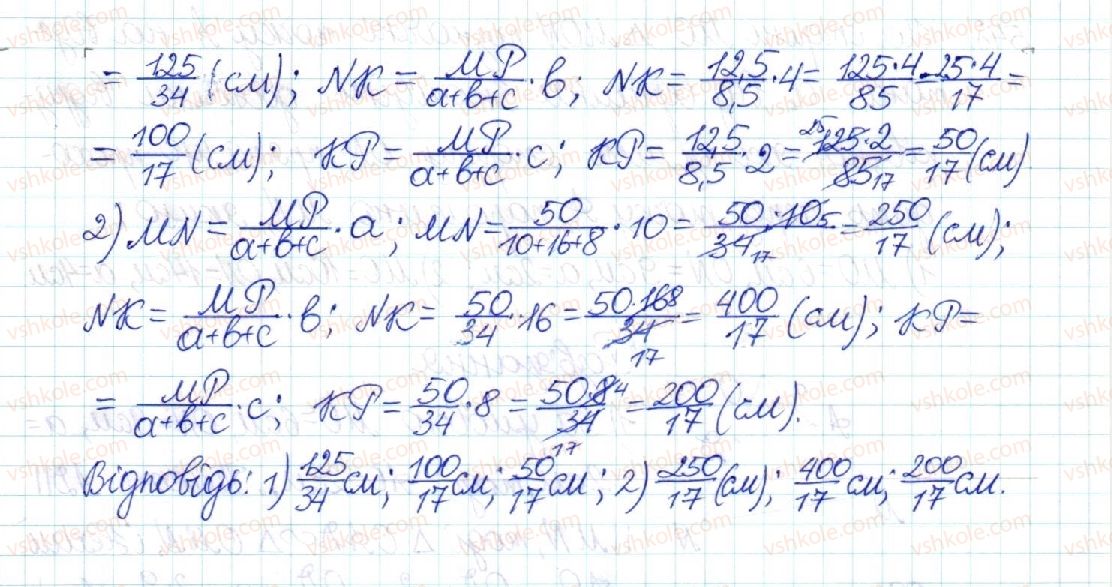 = 125/34 (см); NK = MP/(a+b+c) · b; NK = 12,5/8,5 · 4 = 125·4/85 = 25·4/17 =
= 100/17 (см); KP = MP/(a+b+c) · c; KP = 12,5/8,5 · 2 = 25 125·2/85 17 = 50/17 (см)
2) MN = MP/(a+b+c) · a; MN = 50/(10+16+8) · 10 = 50·10 5/34 17 = 250/17 (см);
NK = MP/(a+b+c) · b; NK = 50/34 · 16 = 50·16 8/34 17 = 400/17 (см); KP =
= MP/(a+b+c) · c; KP = 50/34 · 8 = 50·8 4/34 17 = 200/17 (см).
Відповідь: 1) 125/34 см; 100/17 см; 50/17 см; 2) 250/17 (см); 400/17 см; 200/17 см.